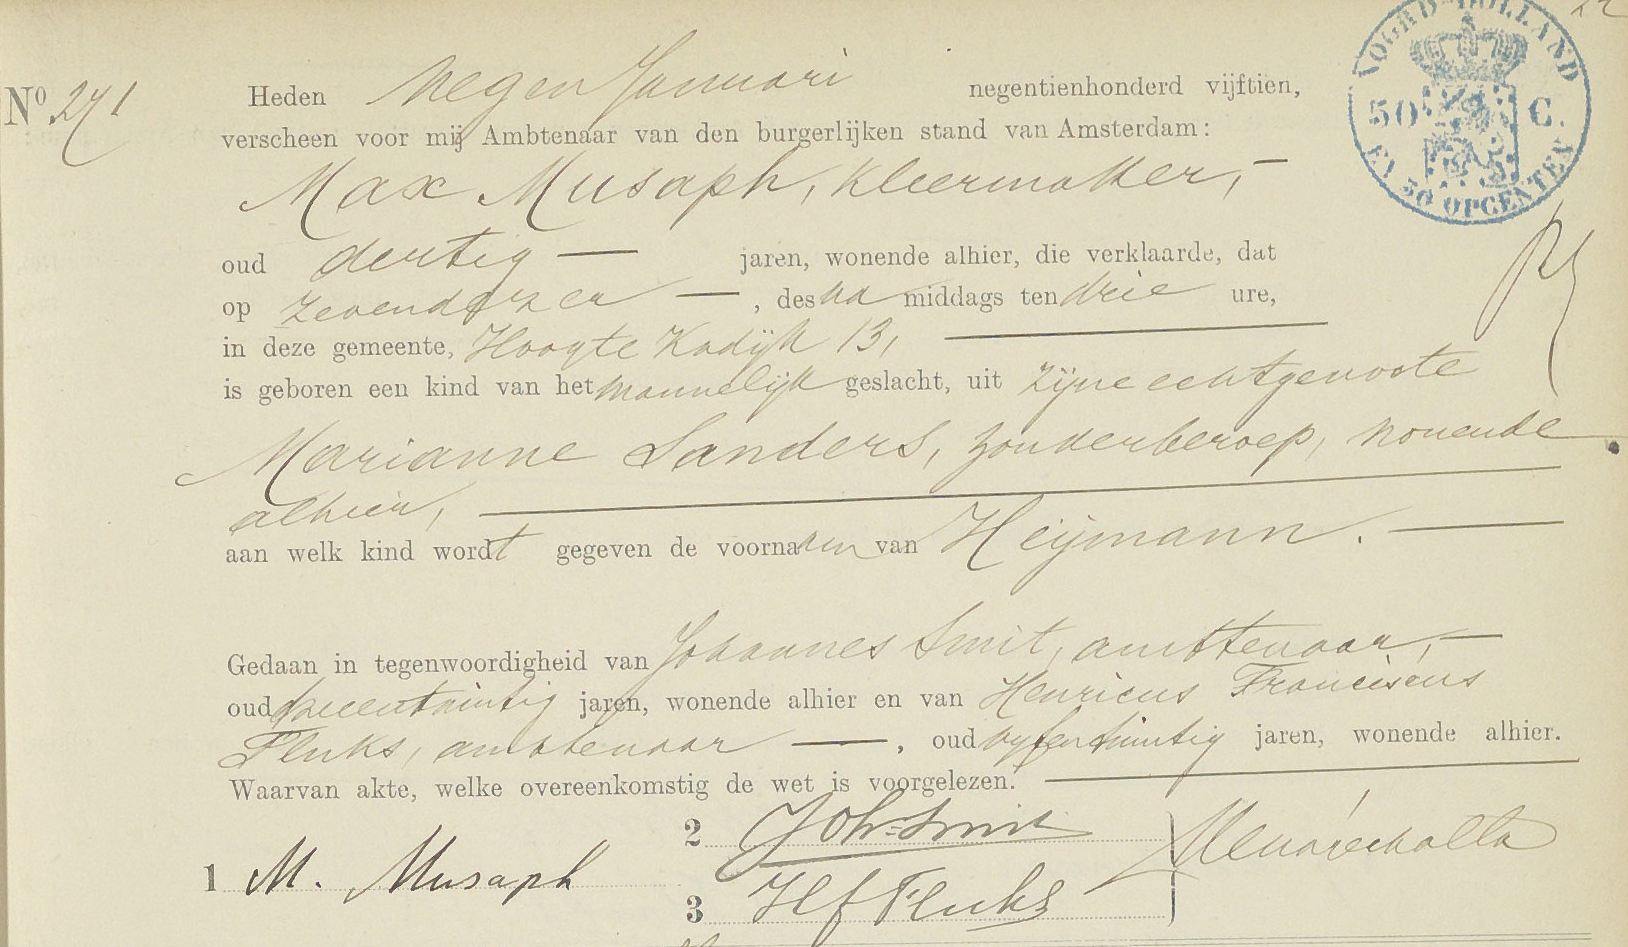 NOORD-HOLLAND
50 C.
EN 38 OPCENTEN
No 271
Heden Negen Januari negentienhonderd vijftien,
verscheen voor mij Ambtenaar van den burgerlijken stand van Amsterdam:
Max Musaph, kleermaker, —
oud dertig — jaren, wonende alhier, die verklaarde, dat
op zevendezer — , des na middags ten drie ure,
in deze gemeente, Hoogte Kadijk 13,
is geboren een kind van het mannelijk geslacht, uit zijne echtgenoote
Marianne Sanders, zonder beroep, wonende
alhier,
aan welk kind wordt gegeven de voornamen van Heijmann. —
Gedaan in tegenwoordigheid van Johannes Smit, ambtenaar, —
oud tweeentwintig jaren, wonende alhier en van Henricus Franciscus
Fluks, ambtenaar — , oud vyfentwintig jaren, wonende alhier.
Waarvan akte, welke overeenkomstig de wet is voorgelezen.
1 M. Musaph
2 Joh. Smit
3 H F Fluks